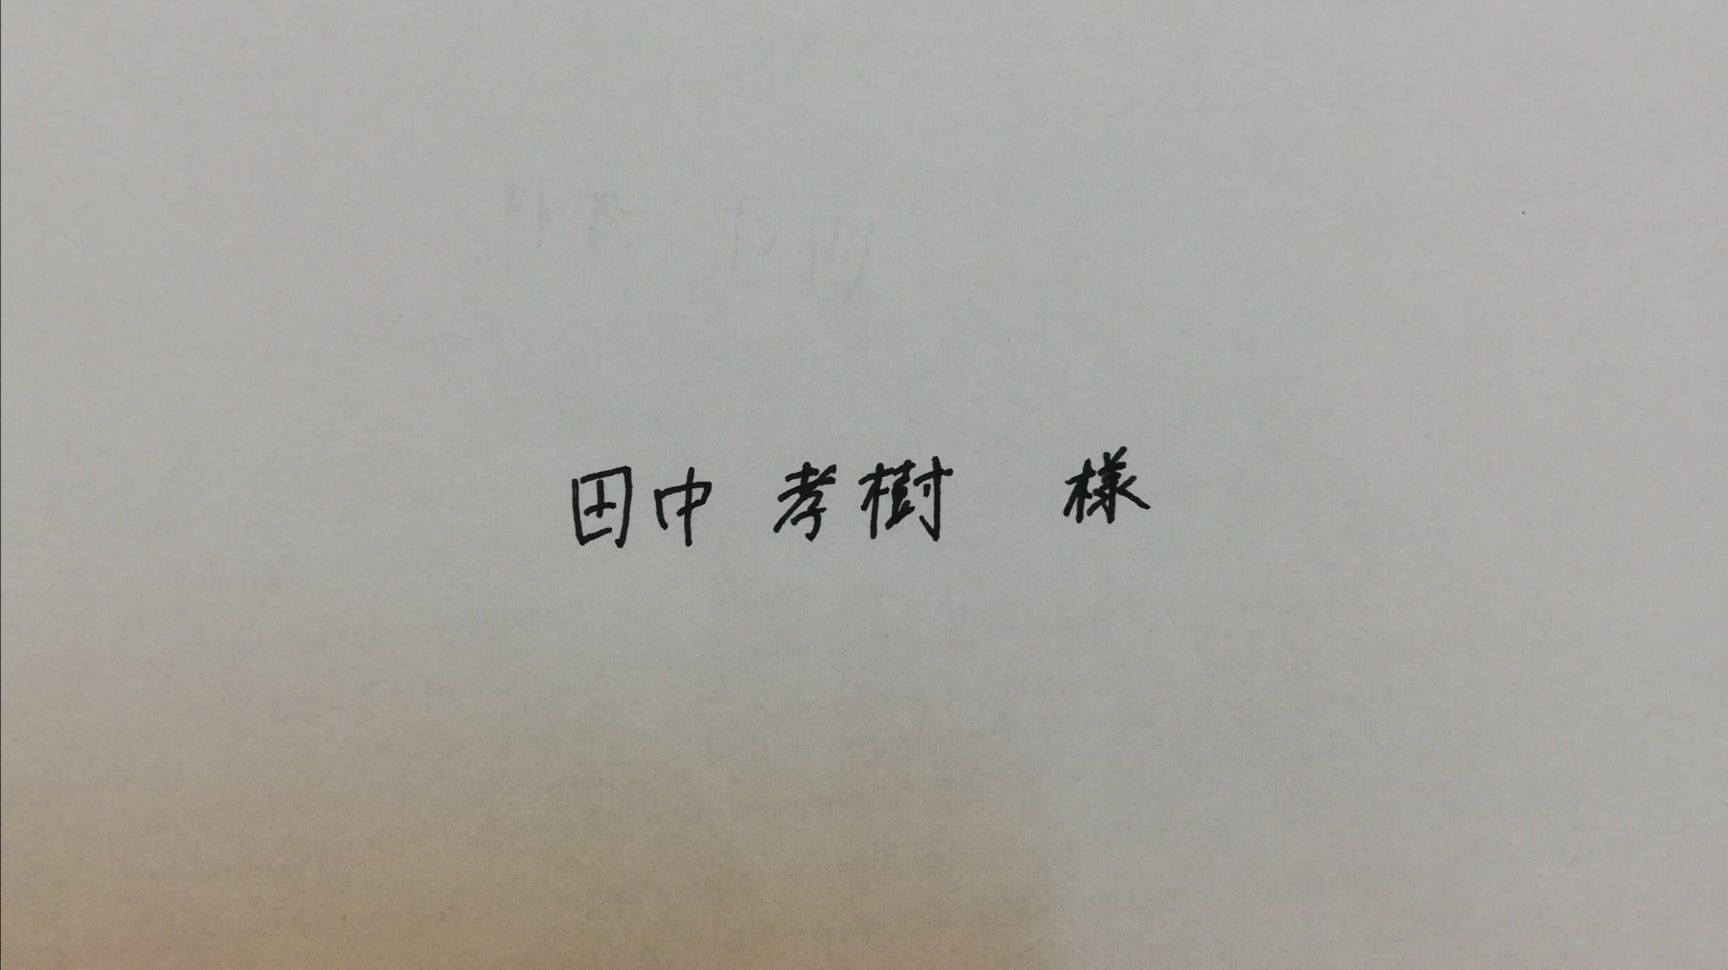 田中 孝樹 様